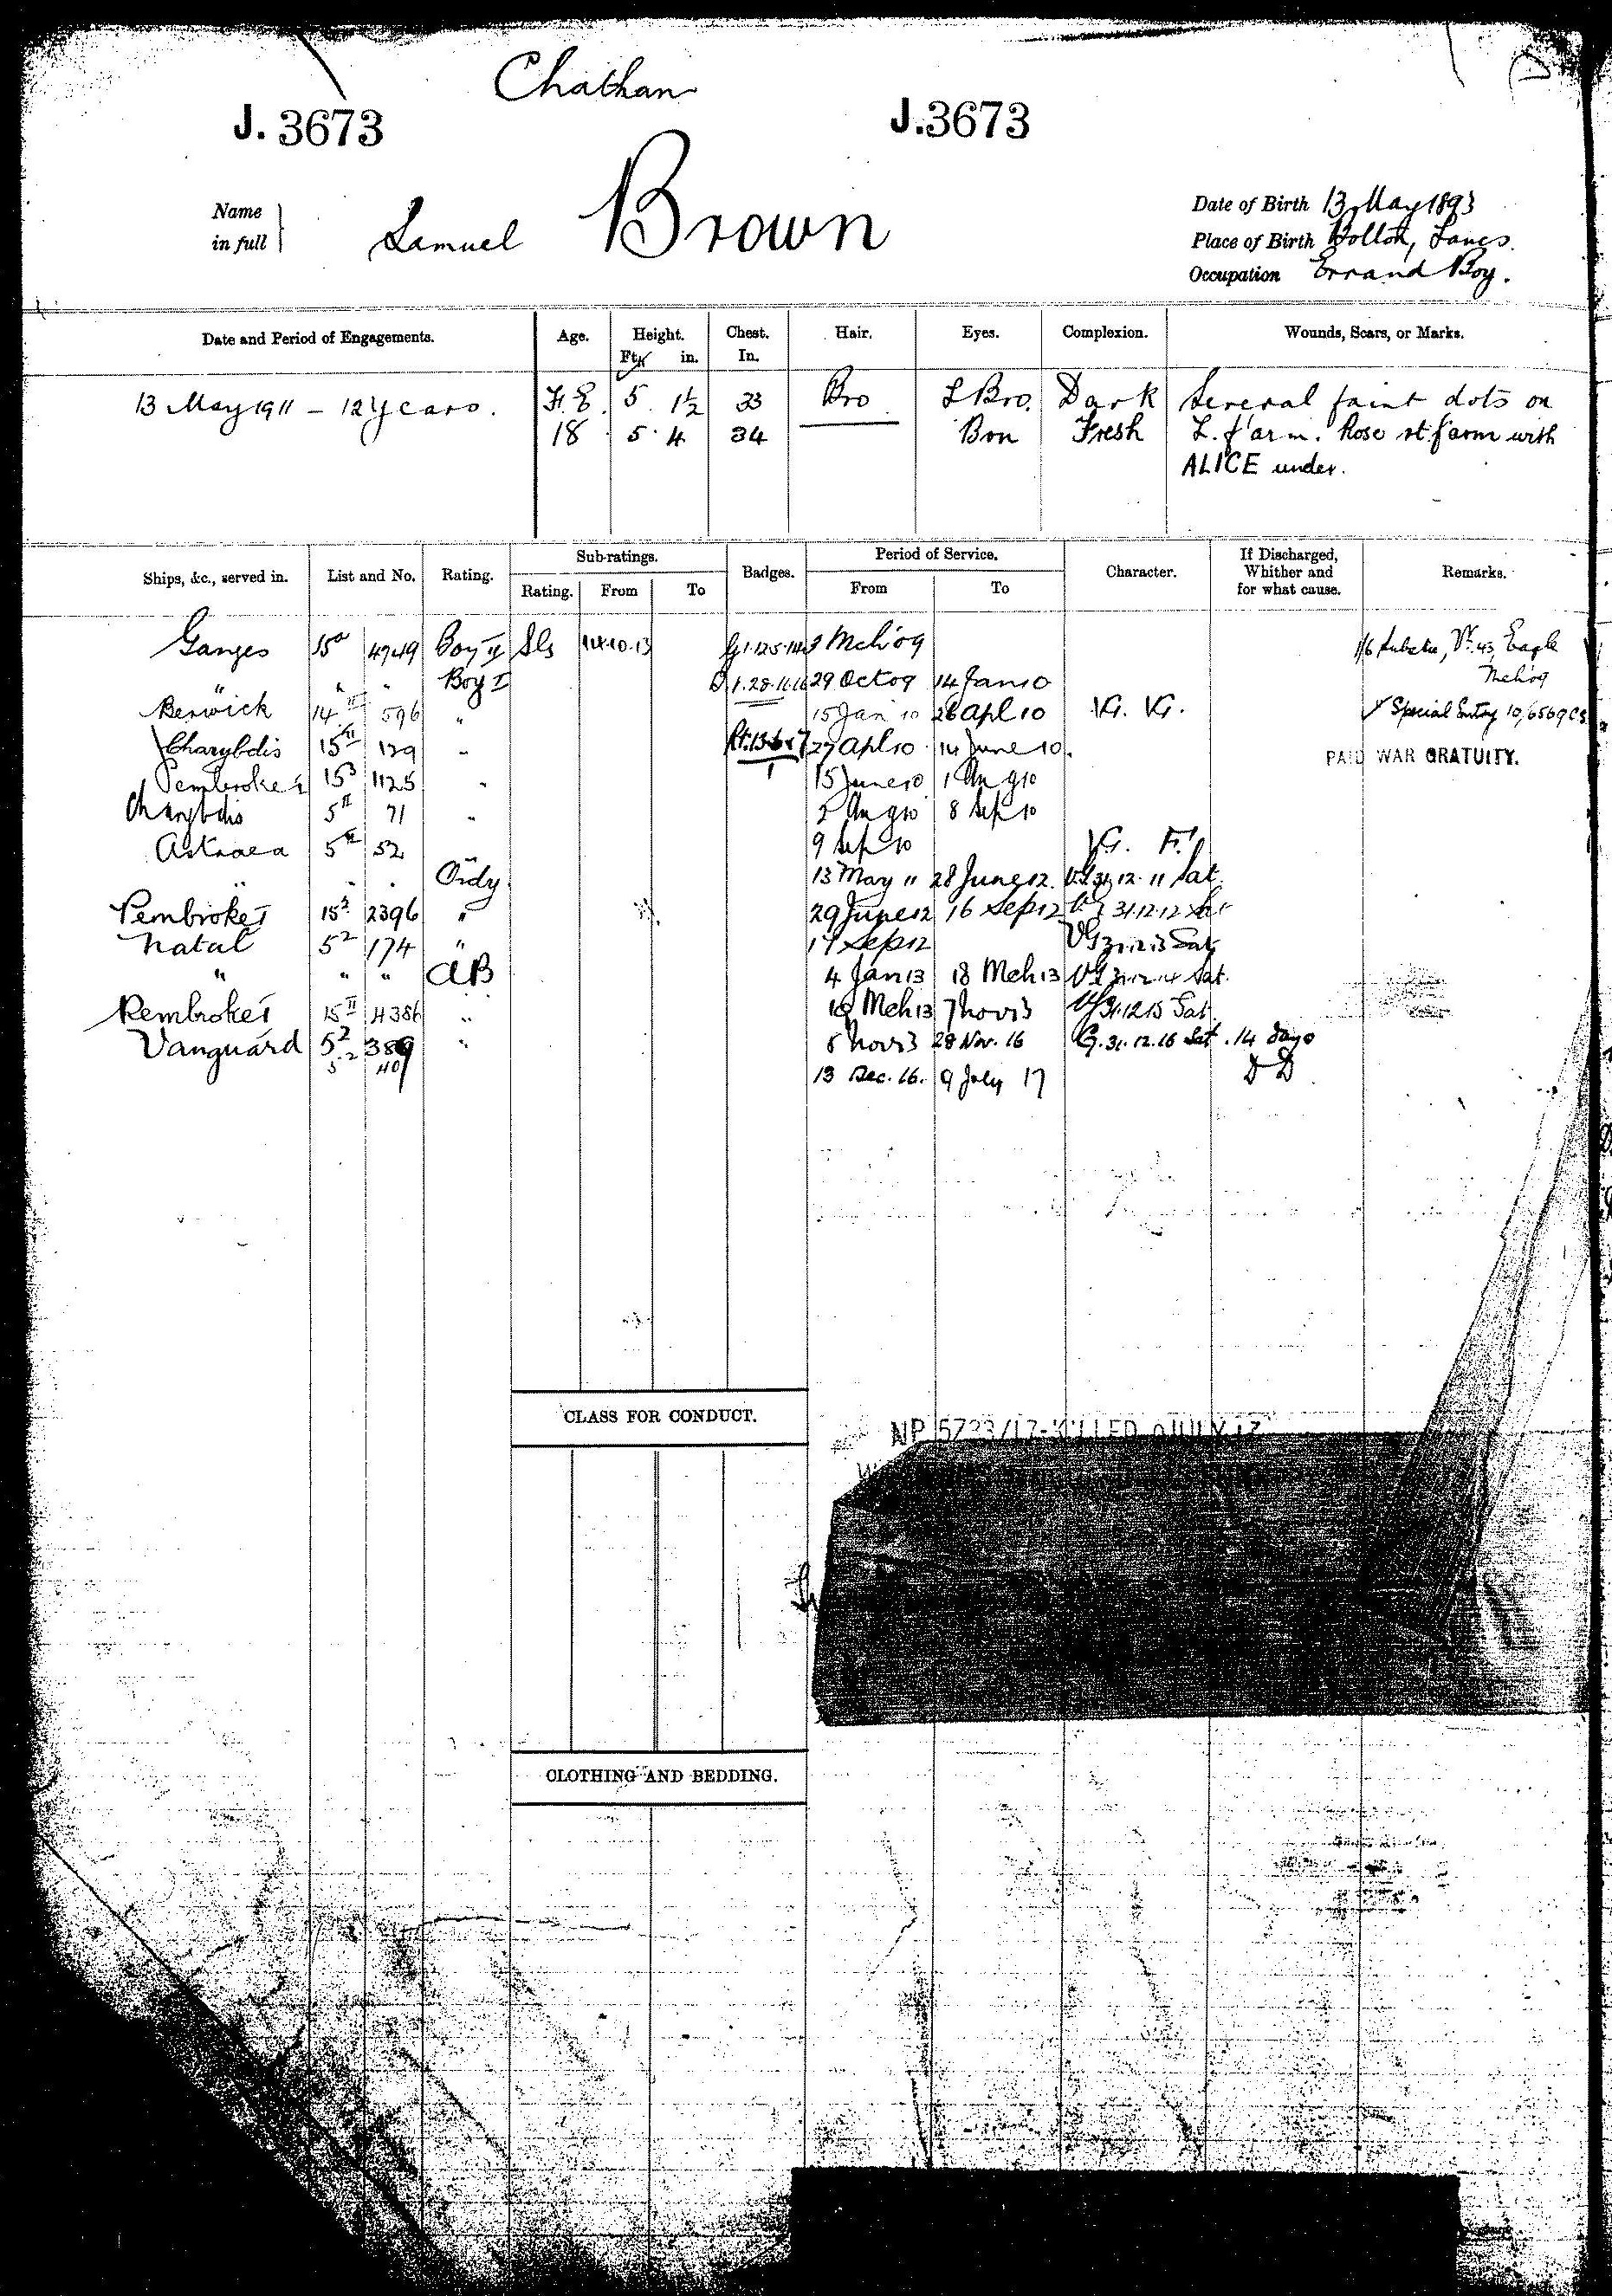 Chatham
J. 3673 J. 3673
Name in full Samuel Brown
Date of Birth 13 May 1893
Place of Birth Bolton, Lancs.
Occupation Errand Boy.
Date and Period of Engagements. Age. Height. Ft. in. Chest. In. Hair. Eyes. Complexion. Wounds, Scars, or Marks.
13 May 1911 - 12 years. F.E. 5 1½ 33 Bro L Bro. Dark Several faint dots on
18 5 4 34 Bon Fresh L. f'arm. Rose rt. f'arm with
ALICE under.
Ships, &c., served in. List and No. Rating. Sub-ratings. Rating. From To Badges. Period of Service. From To Character. If Discharged, Whither and for what cause. Remarks.
Ganges 15a 4949 Boy II SG 14.10.13 Mch '09 Eagle
" " " Boy I 29 Oct 09 14 Jan 10 Mch 09
Berwick 14 II 596 " 15 Jan 10 26 Apl 10 VG. VG. Special Entry 10/6569 CS
Charybdis 15 II 129 " 27 Apl 10 14 June 10. PAID WAR GRATUITY.
Pembroke I 15 3 1125 " 15 June 10 1 Aug 10
Charybdis 5 II 71 " 2 Aug 10 8 Sep 10
Astraea 5 II 52 9 Sep 10 VG. F.
" " " Ordy 13 May 11 28 June 12. VG 31.12.11 Sat.
Pembroke I 15 2 2396 " 29 June 12 16 Sep 12 VG 31.12.12 Sat
Natal 5 2 174 " 17 Sep 12 VG 31.12.13 Sat
" " " AB 4 Jan 13 18 Mch 13 VG 31.12.14 Sat.
Pembroke I 15 II 4386 " 19 Mch 13 7 Nov 13 VG 31.12.15 Sat.
Vanguard 5 2 389 " 8 Nov 13 28 Nov. 16 G. 31.12.16 Sat. 14 days
5 2 409 13 Dec. 16. 9 July 17 DD
CLASS FOR CONDUCT.
NP 5733/17-KILLED 9 JULY 17
CLOTHING AND BEDDING.